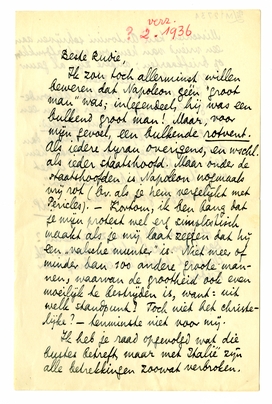 verz.
? 2. 1936
Beste Rudie,
Ik zou toch allerminst willen
beweren dat Napoleon géén "groot
man" was; integendeel, hij was een
bulkend groot man! Maar, voor
mijn gevoel, een bulkende rotvent.
Als iedere tyran overigens, en wschl.
als ieder staatshoofd. Maar onder de
staatshoofden is Napoleon nogmaals
vrij rot (b.v. als je hem vergelijkt met
Pericles). – Kortom, ik ben bang dat
je mijn protest wel erg simplistisch
maakt als je mij laat zeggen dat hij
een "valsche munter" is. Niet meer of
minder dan 100 andere groote man-
nen, waarvan de grootheid ook even
moeilijk te bestrijden is, want: uit
welk standpunt? Toch niet het christe-
lijke? – tenminste niet voor mij.
Ik heb je raad opgevolgd wat die
bustes betreft maar met Italië zijn
alle betrekkingen zoowat verbroken.